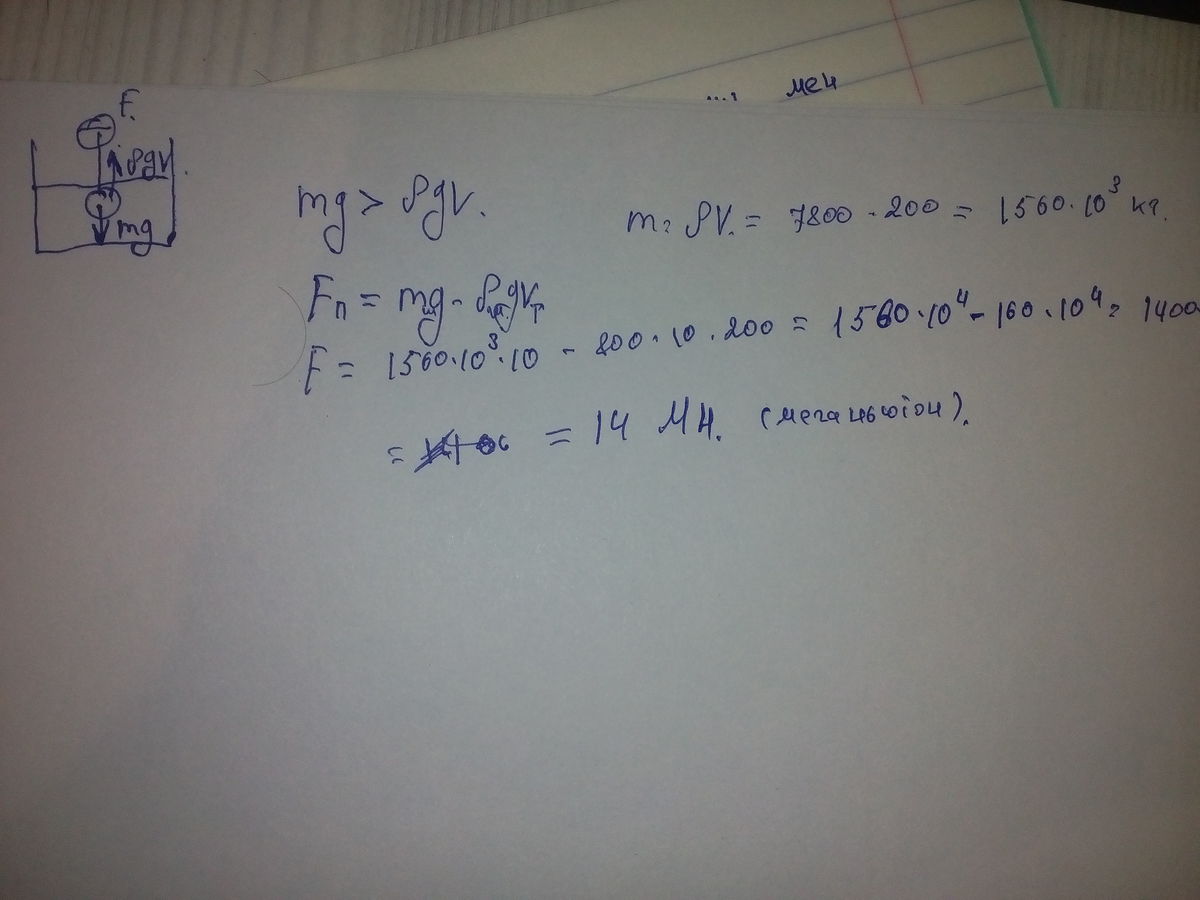 мен
F.
ρgV.
mg
mg > ρgV.
m = ρV. = 7800 · 200 = 1560·10³ кг.
Fп = mg - ρgVт
F = 1560·10³·10 - 800·10·200 = 1560·10⁴ - 160·10⁴ = 1400
= = 14 МН. (меганьютон).